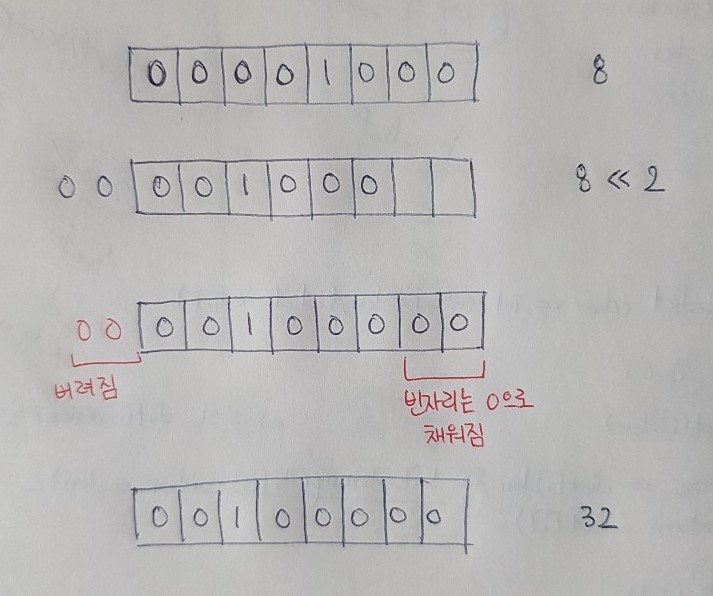 0 0 0 0 1 0 0 0 8
0 0 0 0 1 0 0 0 8 << 2
0 0 0 0 1 0 0 0 0 0
버려짐 빈자리는 0으로
채워짐
0 0 1 0 0 0 0 0 32